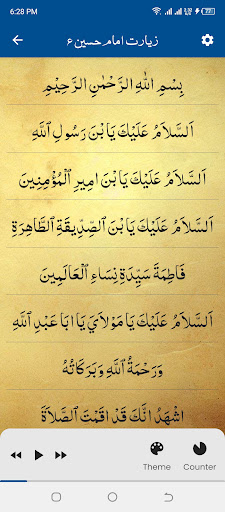 6:28 PM
زیارت امام حسین ع
بِسْمِ اللهِ الرَّحْمٰنِ الرَّحِيْمِ
اَلسَّلَامُ عَلَيْكَ يَا بْنَ رَسُولِ ٱللَّهِ
اَلسَّلَامُ عَلَيْكَ يَا بْنَ اَمِيْرِ ٱلْمُؤْمِنِيْنَ
اَلسَّلَامُ عَلَيْكَ يَا بْنَ ٱلصِّدِّيقَةِ ٱلطَّاهِرَةِ
فَاطِمَةَ سَيِّدَةِ نِسَاءِ ٱلْعَالَمِينَ
اَلسَّلَامُ عَلَيْكَ يَا مَوْلَايَ يَا اَبَا عَبْدِ ٱللَّهِ
وَرَحْمَةُ ٱللَّهِ وَبَرَكَاتُهُ
اَشْهَدُ اَنَّكَ قَدْ اَقَمْتَ ٱلصَّلَاةَ
Theme
Counter